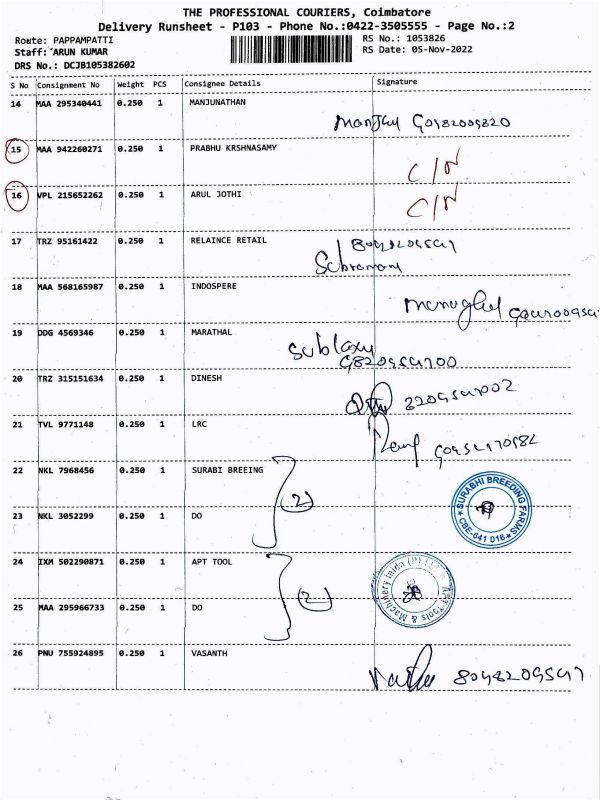 THE PROFESSIONAL COURIERS, Coimbatore
Delivery Runsheet - P103 - Phone No.:0422-3505555 - Page No.:2
Route: PAPPAMPATTI RS No.: 1053826
Staff: ARUN KUMAR RS Date: 05-Nov-2022
DRS No.: DCJB105382602
S No Consignment No Weight PCS Consignee Details Signature
14 MAA 295340441 0.250 1 MANJUNATHAN
15 MAA 942260271 0.250 1 PRABHU KRSHNASAMY
C/N
16 VPL 215652262 0.250 1 ARUL JOTHI
C/N
17 TRZ 95161422 0.250 1 RELAINCE RETAIL
18 MAA 568165987 0.250 1 INDOSPERE
19 DDG 4569346 0.250 1 MARATHAL
20 TRZ 315151634 0.250 1 DINESH
21 TVL 9771148 0.250 1 LRC
22 NKL 7968456 0.250 1 SURABI BREEING
2
SURABHI BREEDING FARMS
CBE-641 016
23 NKL 3052299 0.250 1 DO
24 IXM 502290871 0.250 1 APT TOOL
2
25 MAA 295966733 0.250 1 DO
26 PNU 755924895 0.250 1 VASANTH